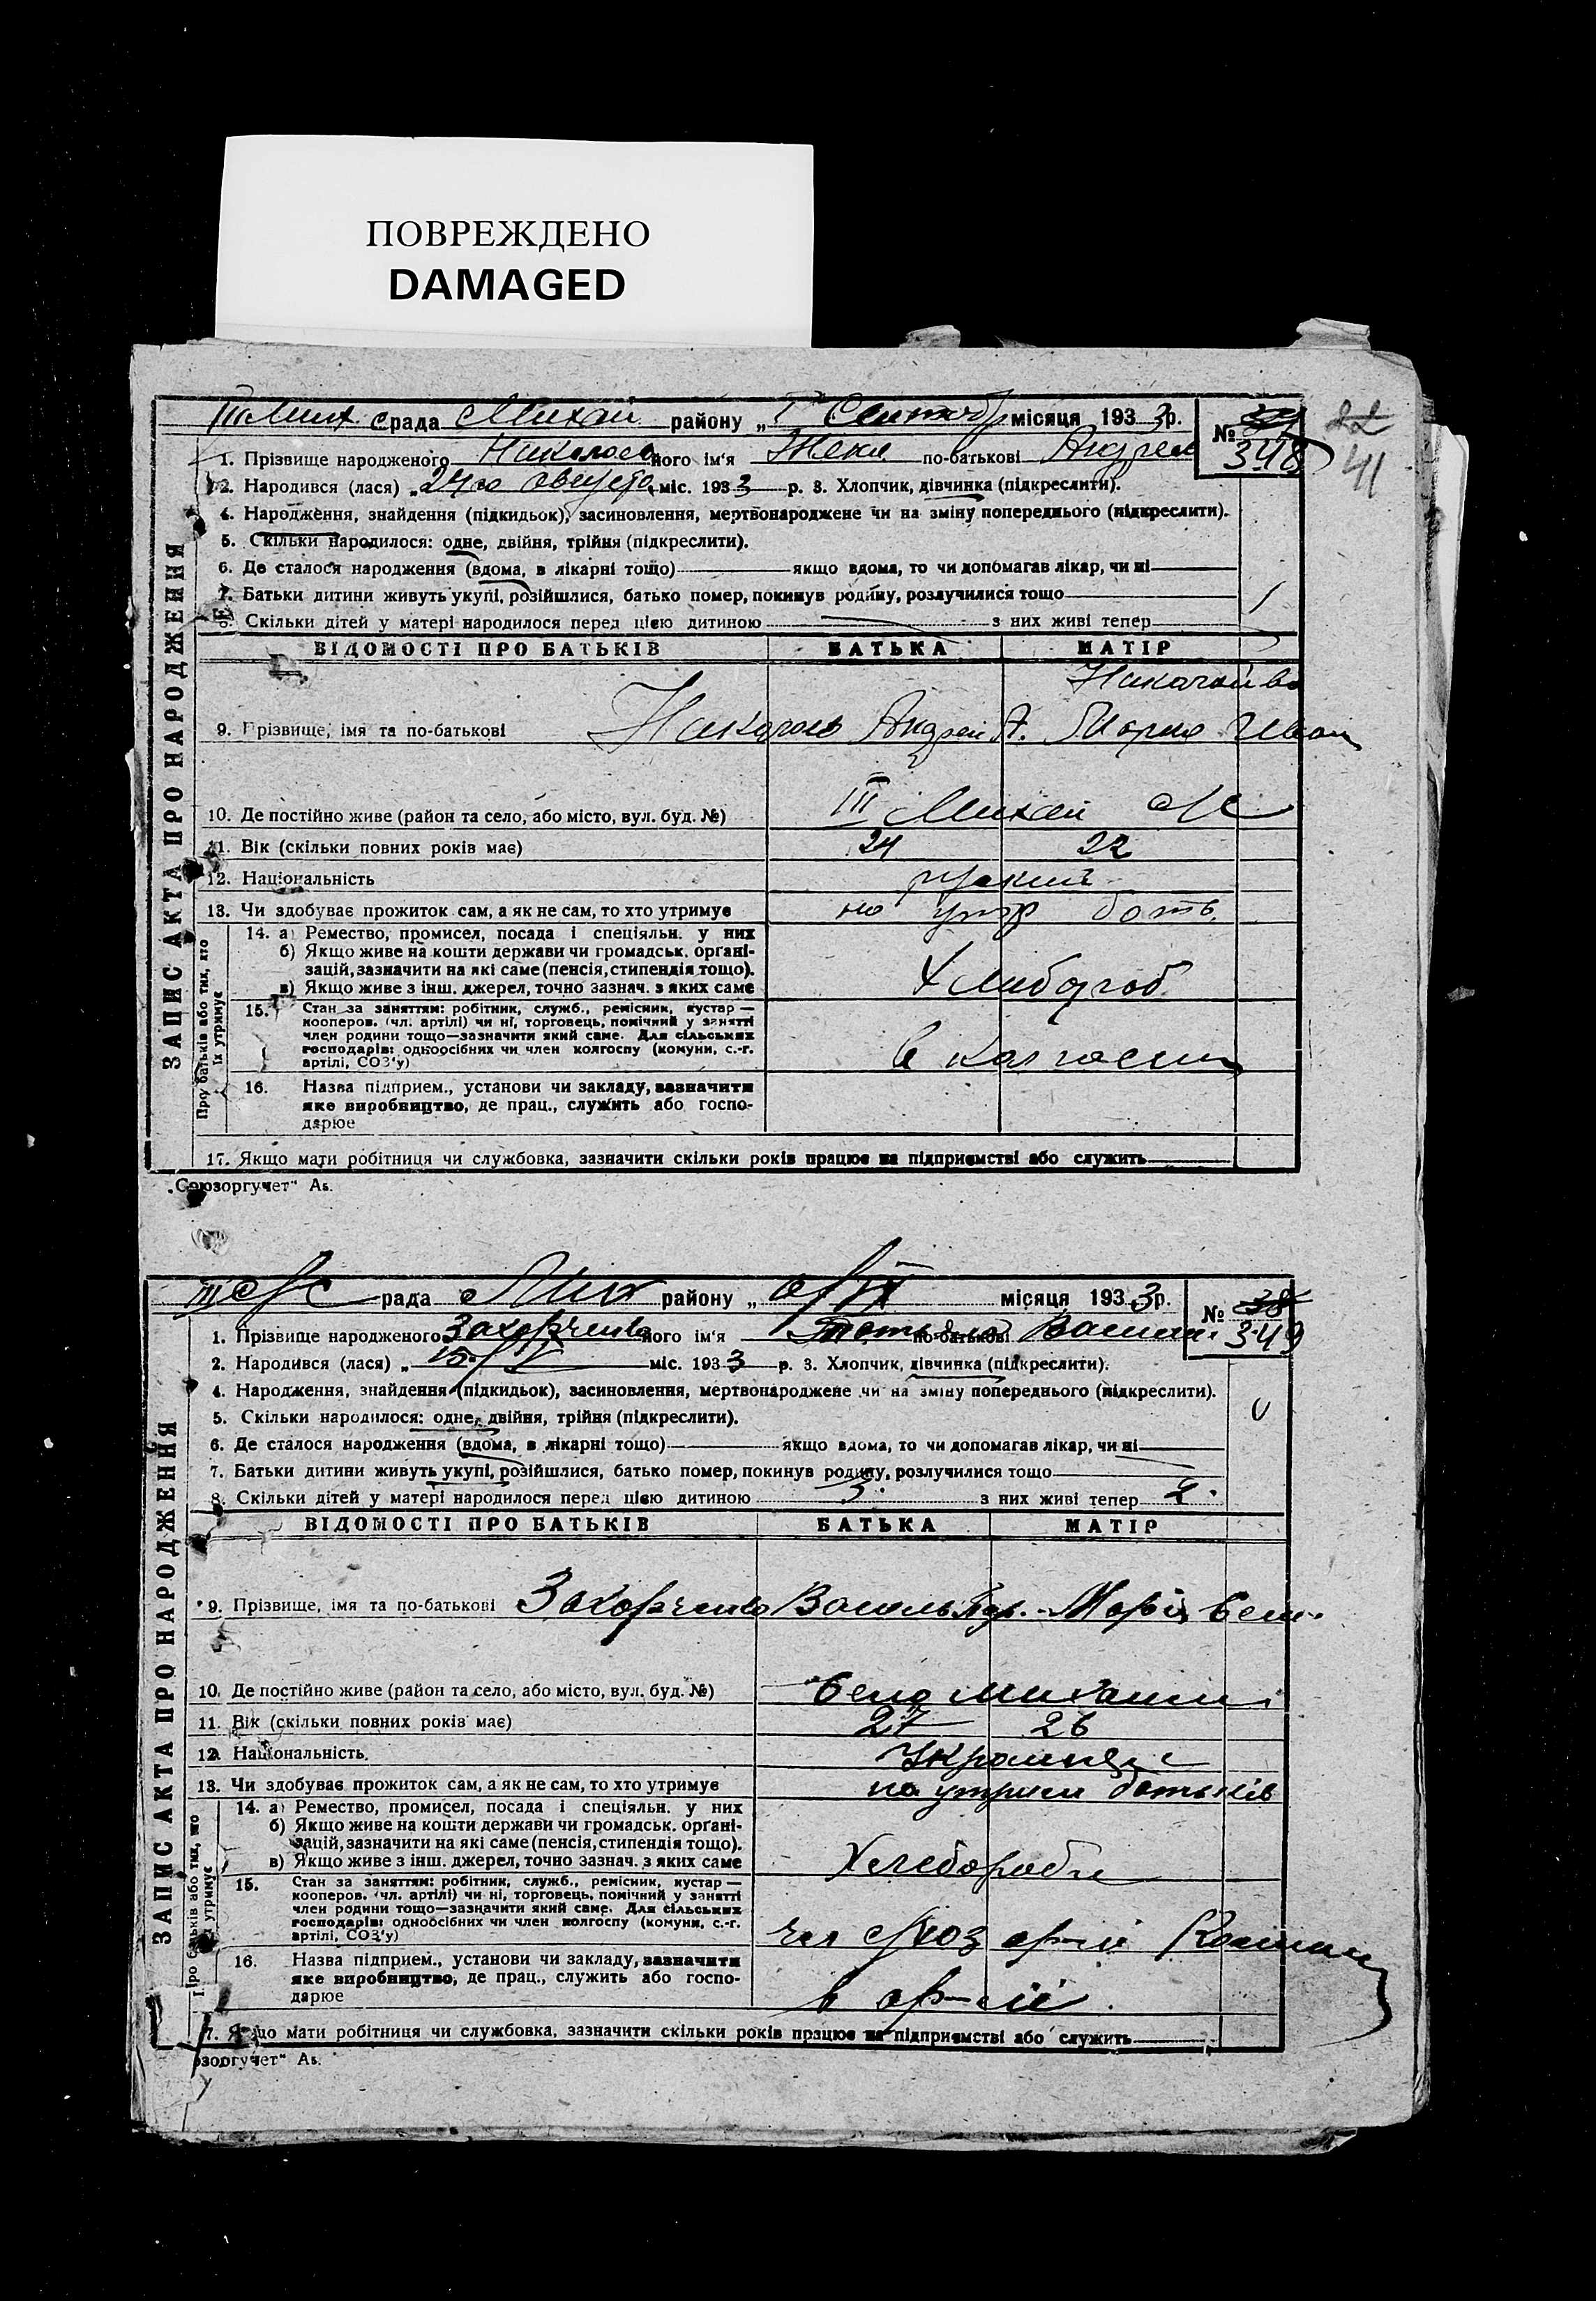 ПОВРЕЖДЕНО
DAMAGED
рада Михай району „ місяця 1933р.
№ 348
41
1. Прізвище народженого його ім'я по-батькові Андрей
2. Народився (лася) „24го августа міс. 1933 р. 3. Хлопчик, дівчинка (підкреслити).
4. Народження, знайдення (підкидьок), засиновлення, мертвонароджене чи на зміну попереднього (підкреслити).
5. Скільки народилося: одне, двійня, трійня (підкреслити).
6. Де сталося народження (вдома, в лікарні тощо) якщо вдома, то чи допомагав лікар, чи ні
7. Батьки дитини живуть укупі, розійшлися, батько помер, покинув родину, розлучилися тощо
8. Скільки дітей у матері народилося перед цією дитиною з них живі тепер
ВІДОМОСТІ ПРО БАТЬКІВ БАТЬКА МАТІР
9. Прізвище, імя та по-батькові Андрей А. Мария Иван
10. Де постійно живе (район та село, або місто, вул. буд. №) III Михай
11. Вік (скільки повних років має) 24 22
12. Національність руский
13. Чи здобуває прожиток сам, а як не сам, то хто утримує на утр бать.
ЗАПИС АКТА ПРО НАРОДЖЕННЯ
Про батьків або тих, хто їх утримує
14. а) Ремество, промисел, посада і спеціяльн. у них
б) Якщо живе на кошти держави чи громадськ. органі-
зацій, зазначити на які саме (пенсія, стипендія тощо).
в) Якщо живе з інш. джерел, точно зазнач. з яких саме
Хлибороб
15. Стан за заняттям: робітник, служб., ремісник, кустар —
кооперов. (чл. артілі) чи ні, торговець, помічний у занятті
член родини тощо—зазначити який саме. Для сільських
господарів: одноосібних чи член колгоспу (комуни, с.-г.
артілі, СОЗ'у) в колгоспи
16. Назва підприєм., установи чи закладу, зазначити
яке виробництво, де прац., служить або госпо-
дарює
17. Якщо мати робітниця чи службовка, зазначити скільки років працює на підприємстві або служить
„Союзоргучет“ Ав.
рада Мих району „ місяця 1933р.
№ 38
349
1. Прізвище народженого Захорченко його ім'я по-батькові Васили
2. Народився (лася) „15/V міс. 1933 р. 3. Хлопчик, дівчинка (підкреслити).
4. Народження, знайдення (підкидьок), засиновлення, мертвонароджене чи на зміну попереднього (підкреслити).
5. Скільки народилося: одне, двійня, трійня (підкреслити).
6. Де сталося народження (вдома, в лікарні тощо) якщо вдома, то чи допомагав лікар, чи ні
7. Батьки дитини живуть укупі, розійшлися, батько помер, покинув родину, розлучилися тощо
8. Скільки дітей у матері народилося перед цією дитиною 3. з них живі тепер 2.
ВІДОМОСТІ ПРО БАТЬКІВ БАТЬКА МАТІР
9. Прізвище, імя та по-батькові Захорченко Василь Марія
10. Де постійно живе (район та село, або місто, вул. буд. №)
11. Вік (скільки повних років має) 27 26
12. Національність
13. Чи здобуває прожиток сам, а як не сам, то хто утримує на утрим батьків
ЗАПИС АКТА ПРО НАРОДЖЕННЯ
14. а) Ремество, промисел, посада і спеціяльн. у них
б) Якщо живе на кошти держави чи громадськ. органі-
зацій, зазначити на які саме (пенсія, стипендія тощо).
в) Якщо живе з інш. джерел, точно зазнач. з яких саме
Хлебороби
15. Стан за заняттям: робітник, служб., ремісник, кустар —
кооперов. (чл. артілі) чи ні, торговець, помічний у занятті
член родини тощо—зазначити який саме. Для сільських
господарів: одноосібних чи член колгоспу (комуни, с.-г.
артілі, СОЗ'у)
16. Назва підприєм., установи чи закладу, зазначити
яке виробництво, де прац., служить або госпо-
дарює
17. Якщо мати робітниця чи службовка, зазначити скільки років працює на підприємстві або служить
озоргучет“ Ав.